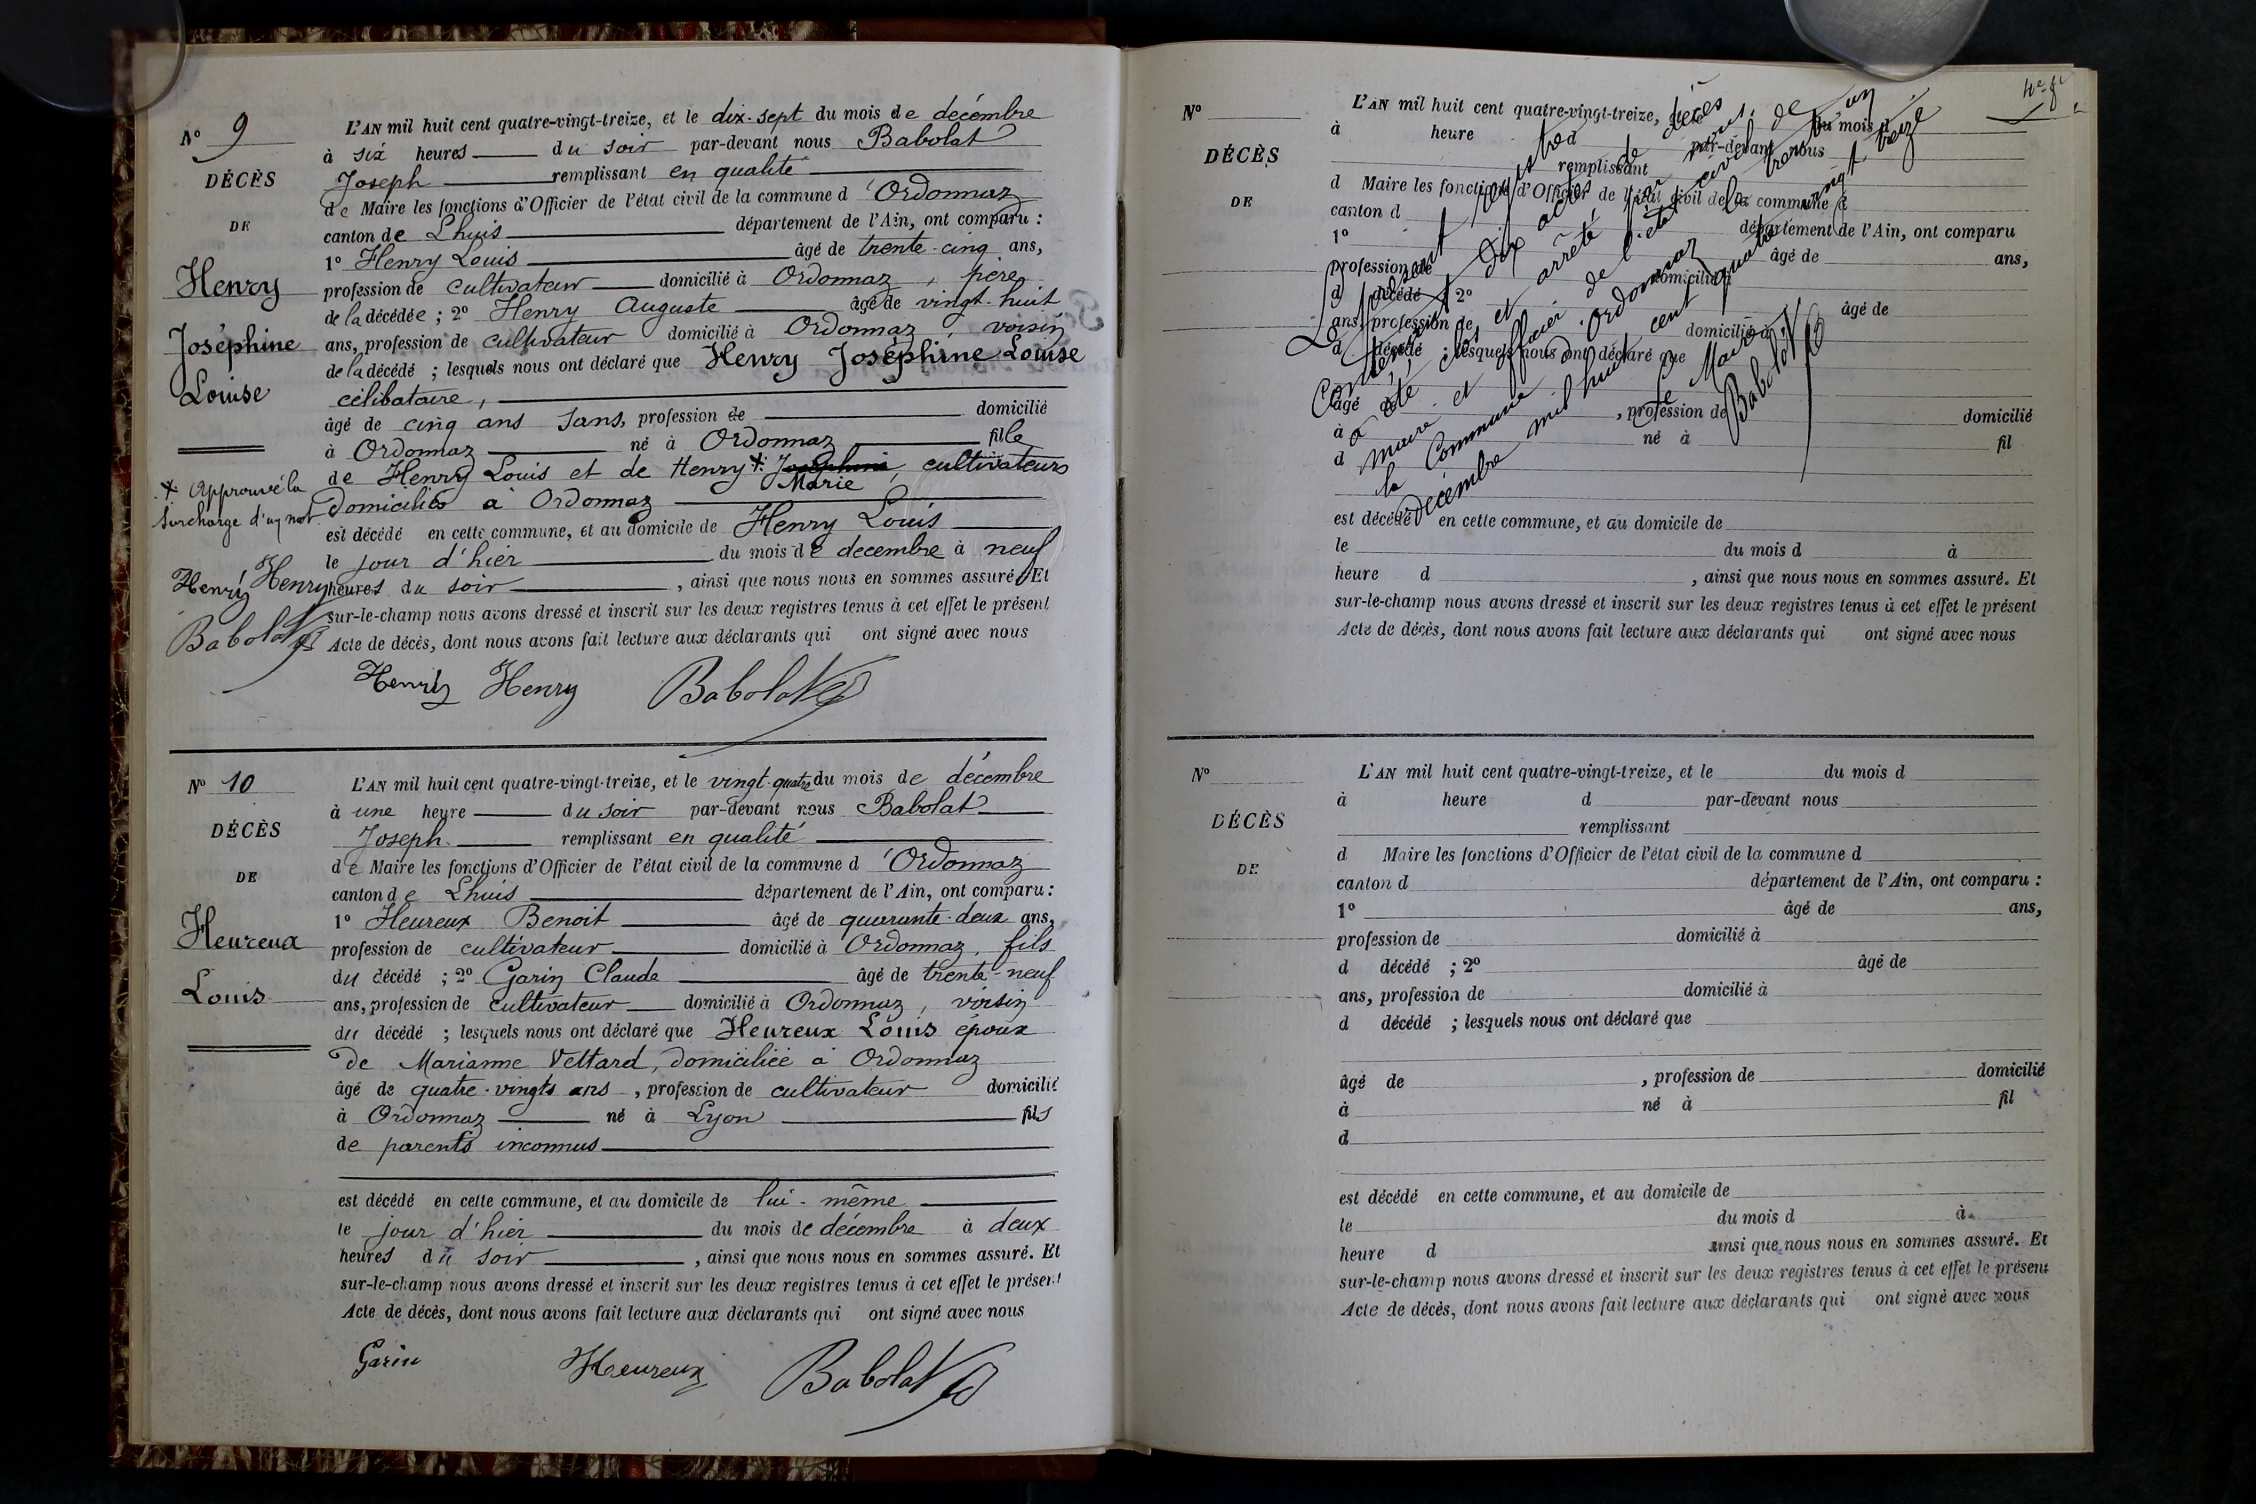 N° 9
DÉCÈS
DE
Henry
Joséphine
Louise
+ Approuvé la
surcharge d'un mot.
Henry Henry
Babolat
L'AN mil huit cent quatre-vingt-treize, et le dix-sept du mois de décembre
à six heures du soir par-devant nous Babolat
Joseph remplissant en qualité
de Maire les fonctions d'Officier de l'état civil de la commune d'Ordonnaz
canton de Lhuis département de l'Ain, ont comparu :
1° Henry Louis âgé de trente-cinq ans,
profession de cultivateur domicilié à Ordonnaz, père
de la décédée ; 2° Henry Auguste âgé de vingt-huit
ans, profession de cultivateur domicilié à Ordonnaz, voisin
de la décédé ; lesquels nous ont déclaré que Henry Joséphine Louise
célibataire,
âgé de cinq ans sans, profession de domicilié
à Ordonnaz né à Ordonnaz fille
de Henry Louis et de Henry + Joséphine, cultivateurs
Marie
domiciliés à Ordonnaz
est décédé en cette commune, et au domicile de Henry Louis
le jour d'hier du mois de decembre à neuf
heures du soir, ainsi que nous nous en sommes assuré. Et
sur-le-champ nous avons dressé et inscrit sur les deux registres tenus à cet effet le présent
Acte de décès, dont nous avons fait lecture aux déclarants qui ont signé avec nous
Henry Henry Babolat
N° 10
DÉCÈS
DE
Heureux
Louis
L'AN mil huit cent quatre-vingt-treize, et le vingt-quatre du mois de décembre
à une heure du soir par-devant nous Babolat
Joseph remplissant en qualité
de Maire les fonctions d'Officier de l'état civil de la commune d'Ordonnaz
canton de Lhuis département de l'Ain, ont comparu :
1° Heureux Benoit âgé de quarante-deux ans,
profession de cultivateur domicilié à Ordonnaz, fils
du décédé ; 2° Garin Claude âgé de trente-neuf
ans, profession de cultivateur domicilié à Ordonnaz, voisin
du décédé ; lesquels nous ont déclaré que Heureux Louis époux
de Marianne Vettard, domiciliée à Ordonnaz
âgé de quatre-vingts ans, profession de cultivateur domicilié
à Ordonnaz né à Lyon fils
de parents inconnus
est décédé en cette commune, et au domicile de lui-même
le jour d'hier du mois de décembre à deux
heures du soir, ainsi que nous nous en sommes assuré. Et
sur-le-champ nous avons dressé et inscrit sur les deux registres tenus à cet effet le présent
Acte de décès, dont nous avons fait lecture aux déclarants qui ont signé avec nous
Garin Heureux Babolat
N°
DÉCÈS
DE
L'AN mil huit cent quatre-vingt-treize, et le du mois d
à heure d par-devant nous
remplissant
d Maire les fonctions d'Officier de l'état civil de la commune d
canton d département de l'Ain, ont comparu
1° âgé de ans,
profession de domicilié à
d décédé ; 2° âgé de
ans, profession de domicilié à
d décédé ; lesquels nous ont déclaré que
âgé de , profession de domicilié
à né à fil
d
est décédé en cette commune, et au domicile de
le du mois d à
heure d , ainsi que nous nous en sommes assuré. Et
sur-le-champ nous avons dressé et inscrit sur les deux registres tenus à cet effet le présent
Acte de décès, dont nous avons fait lecture aux déclarants qui ont signé avec nous
Le présent registre de décès
contenant dix actes
a été clos et arrêté par nous,
maire et officier de l'état civil de
la commune d'Ordonnaz le trente un
décembre mil huit cent quatre vingt treize
Le Maire
Babolat
N°
DÉCÈS
DE
L'AN mil huit cent quatre-vingt-treize, et le du mois d
à heure d par-devant nous
remplissant
d Maire les fonctions d'Officier de l'état civil de la commune d
canton d département de l'Ain, ont comparu :
1° âgé de ans,
profession de domicilié à
d décédé ; 2° âgé de
ans, profession de domicilié à
d décédé ; lesquels nous ont déclaré que
âgé de , profession de domicilié
à né à fil
d
est décédé en cette commune, et au domicile de
le du mois d à
heure d ainsi que nous nous en sommes assuré. Et
sur-le-champ nous avons dressé et inscrit sur les deux registres tenus à cet effet le présent
Acte de décès, dont nous avons fait lecture aux déclarants qui ont signé avec nous